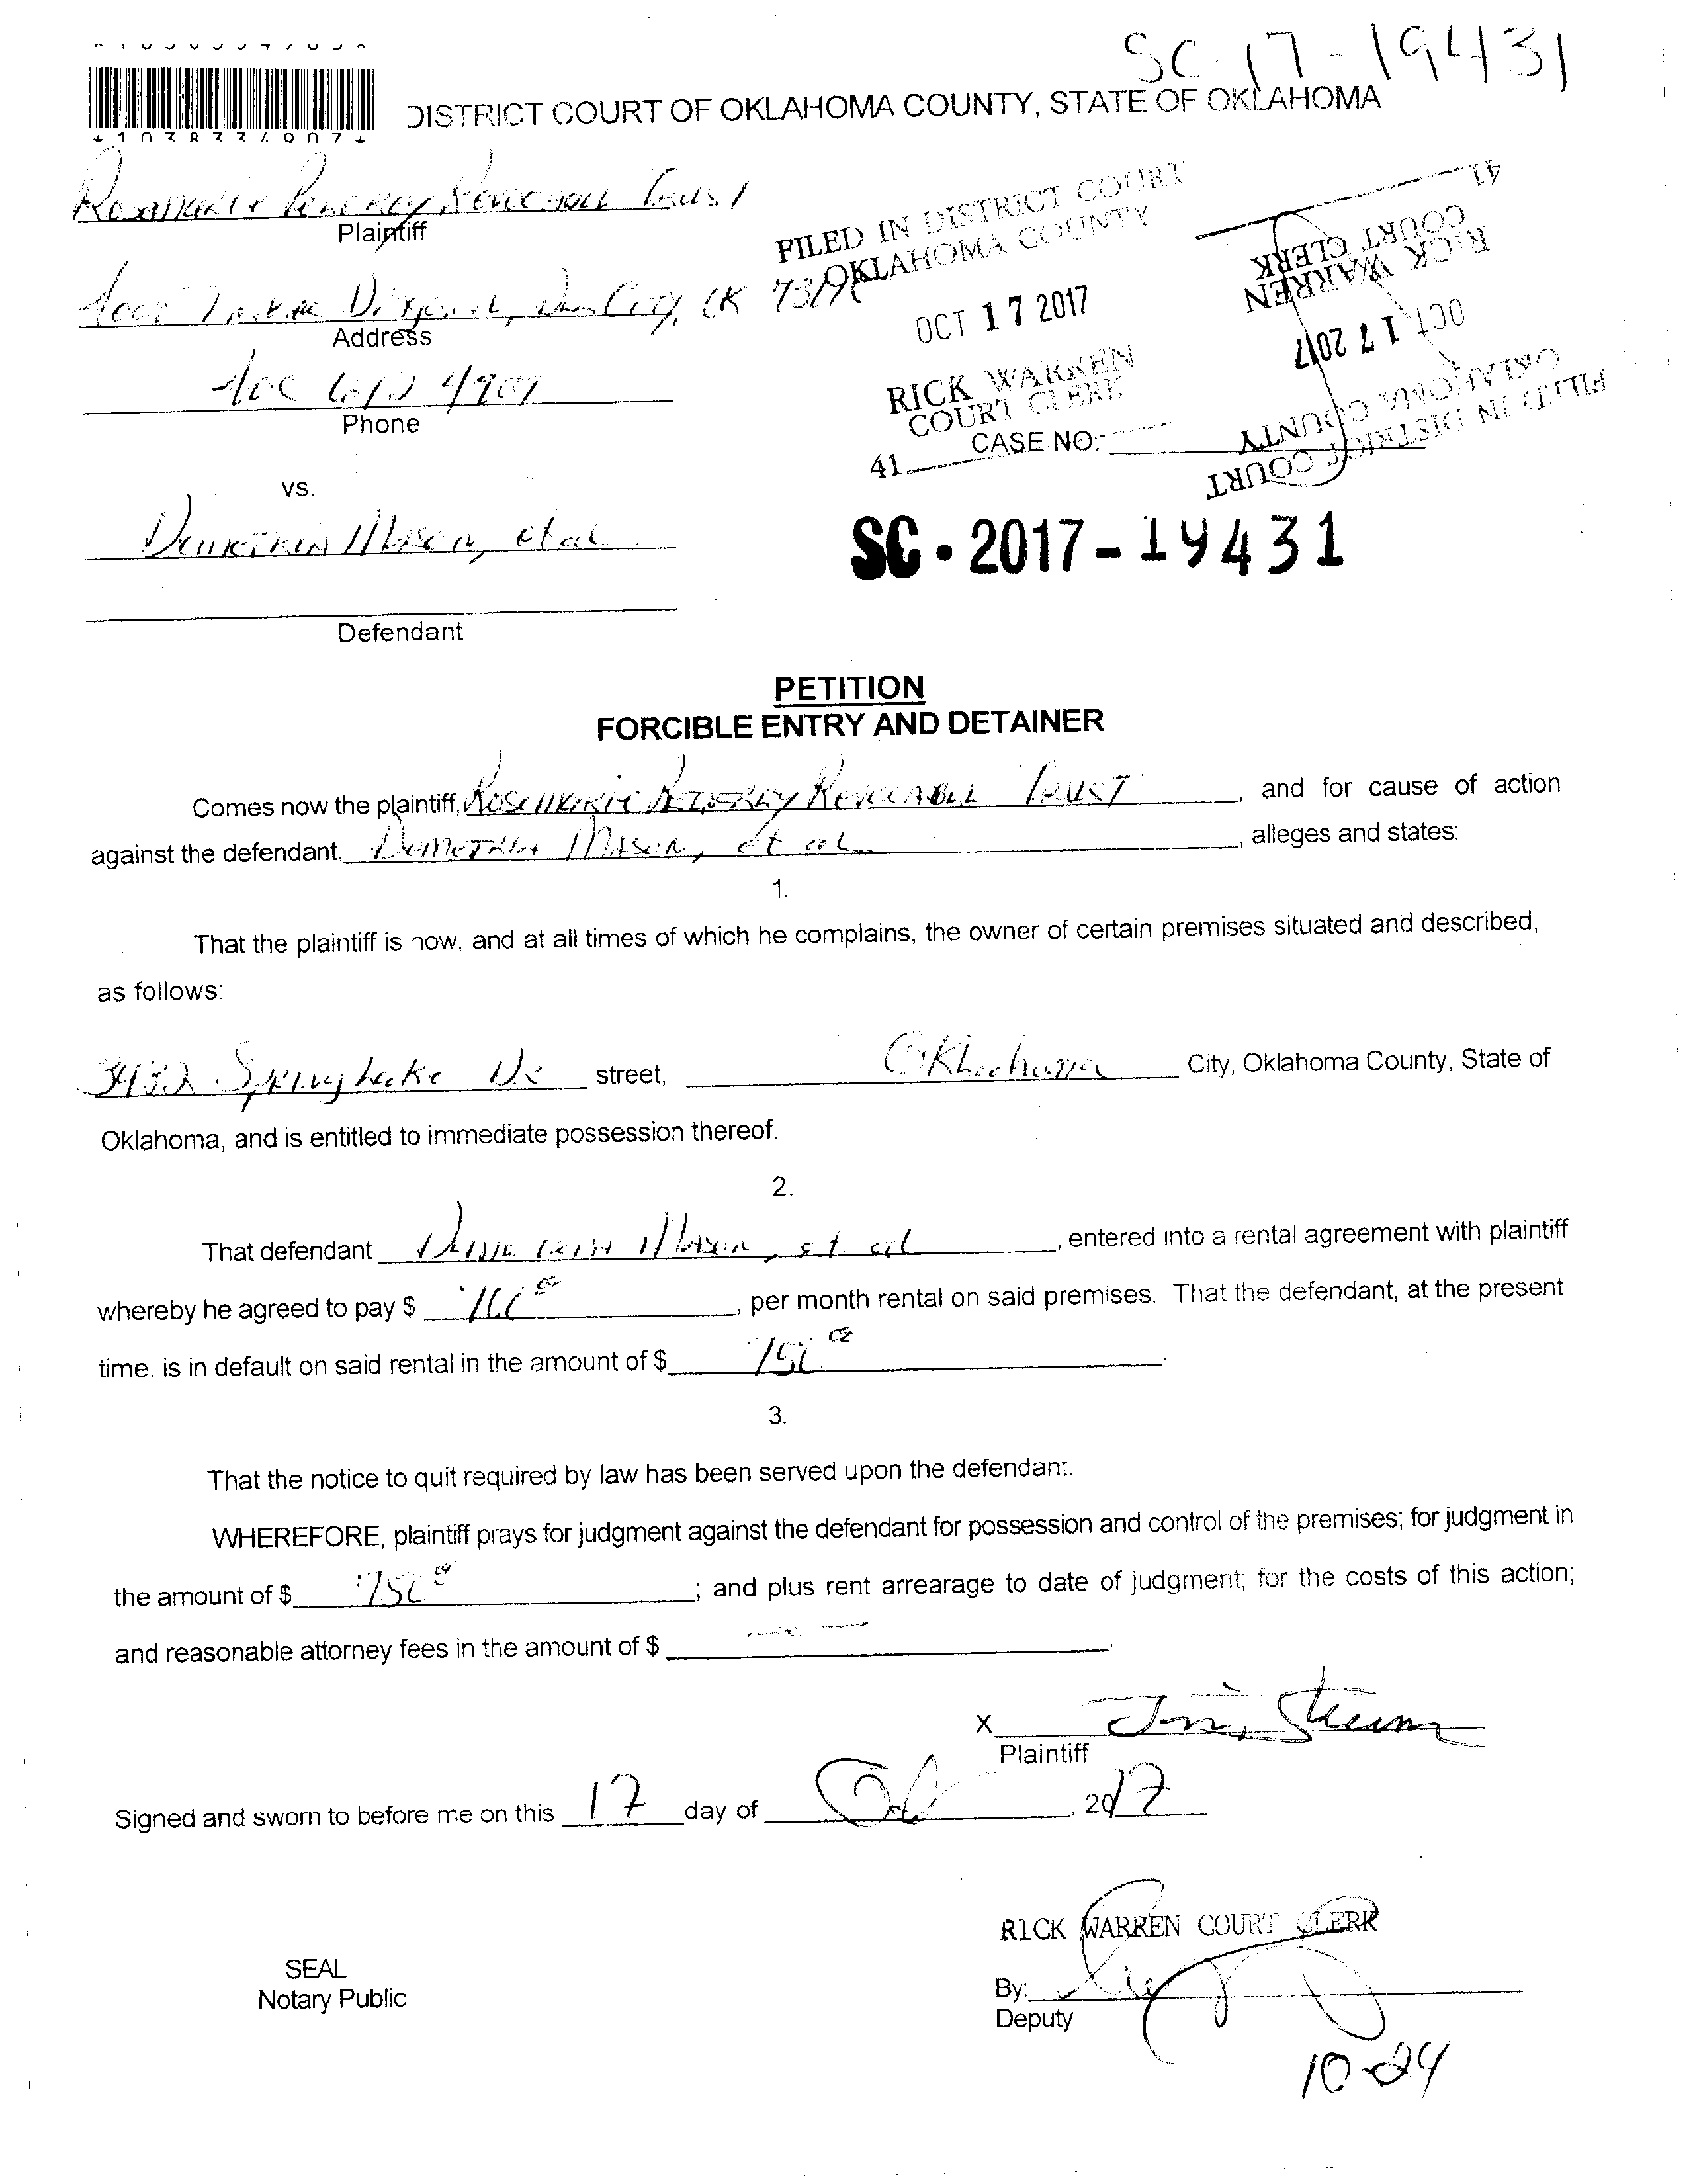 SC 17-19431
DISTRICT COURT OF OKLAHOMA COUNTY, STATE OF OKLAHOMA
Trust
Plaintiff
FILED IN DISTRICT COURT
OKLAHOMA COUNTY
City, OK
Address
OCT 17 2017
RICK WARREN
COURT CLERK
41
405
Phone
CASE NO.
FILED IN DISTRICT COURT
OKLAHOMA COUNTY
OCT 17 2017
RICK WARREN
COURT CLERK
41
vs.
Mason, et al
SC • 2017 - 19431
Defendant
PETITION
FORCIBLE ENTRY AND DETAINER
Comes now the plaintiff, Rosemarie Revocable Trust, and for cause of action
against the defendant, Demetria Mason, et al, alleges and states:
1.
That the plaintiff is now, and at all times of which he complains, the owner of certain premises situated and described,
as follows:
3432 Springlake Dr street, Oklahoma City, Oklahoma County, State of
Oklahoma, and is entitled to immediate possession thereof.
2.
That defendant Demetria Mason, et al, entered into a rental agreement with plaintiff
whereby he agreed to pay $, per month rental on said premises. That the defendant, at the present
time, is in default on said rental in the amount of $ 750
3.
That the notice to quit required by law has been served upon the defendant.
WHEREFORE, plaintiff prays for judgment against the defendant for possession and control of the premises; for judgment in
the amount of $ 750; and plus rent arrearage to date of judgment; for the costs of this action;
and reasonable attorney fees in the amount of $
X
Plaintiff
Signed and sworn to before me on this 17 day of Oct, 2017
RICK WARREN COURT CLERK
SEAL
Notary Public
By:
Deputy
10-24